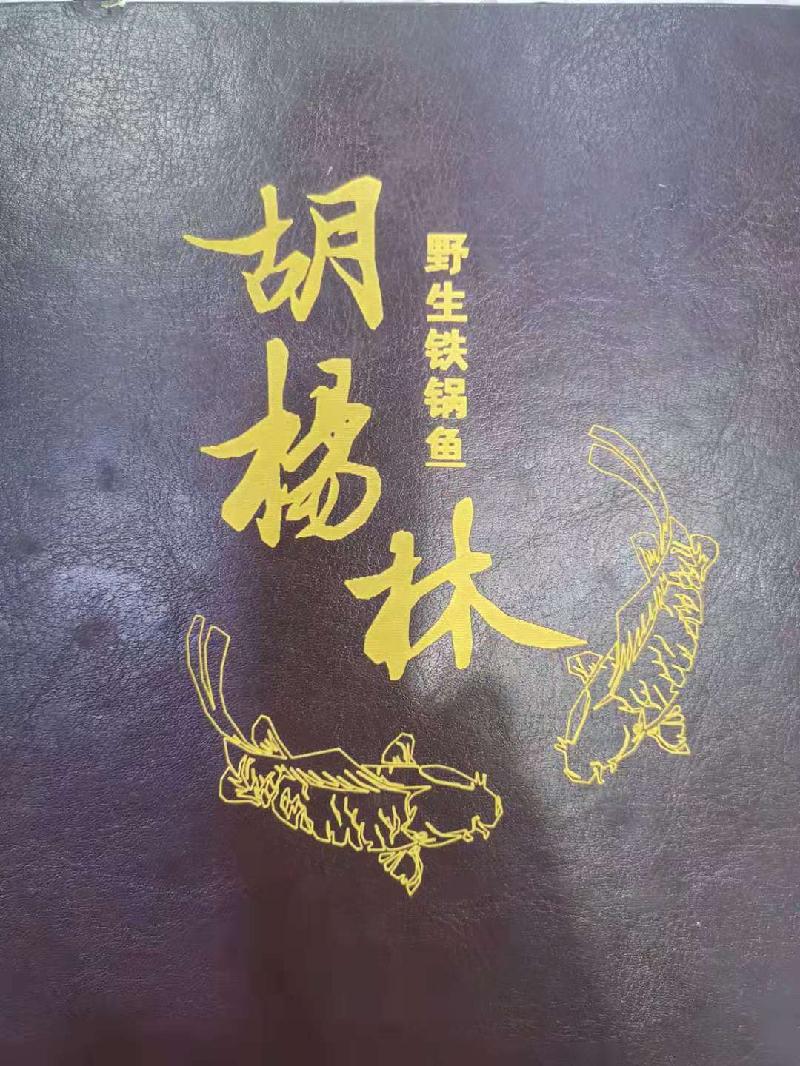 胡杨林
野生铁锅鱼